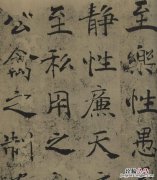 至樂性愚
靜性廉天
至私用之
公禽之制